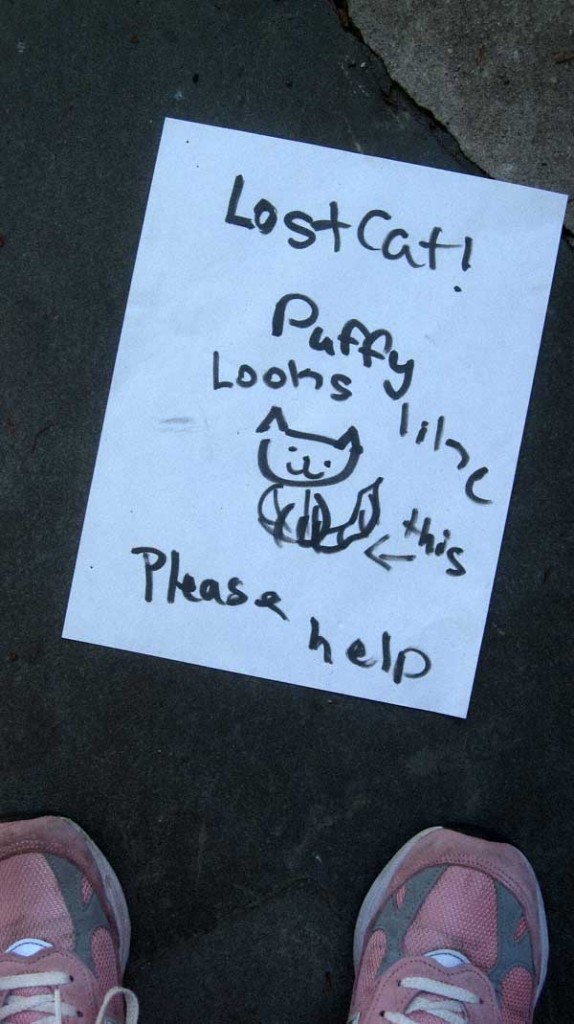 Lost Cat!
Puffy
Looks like
this
Please
help